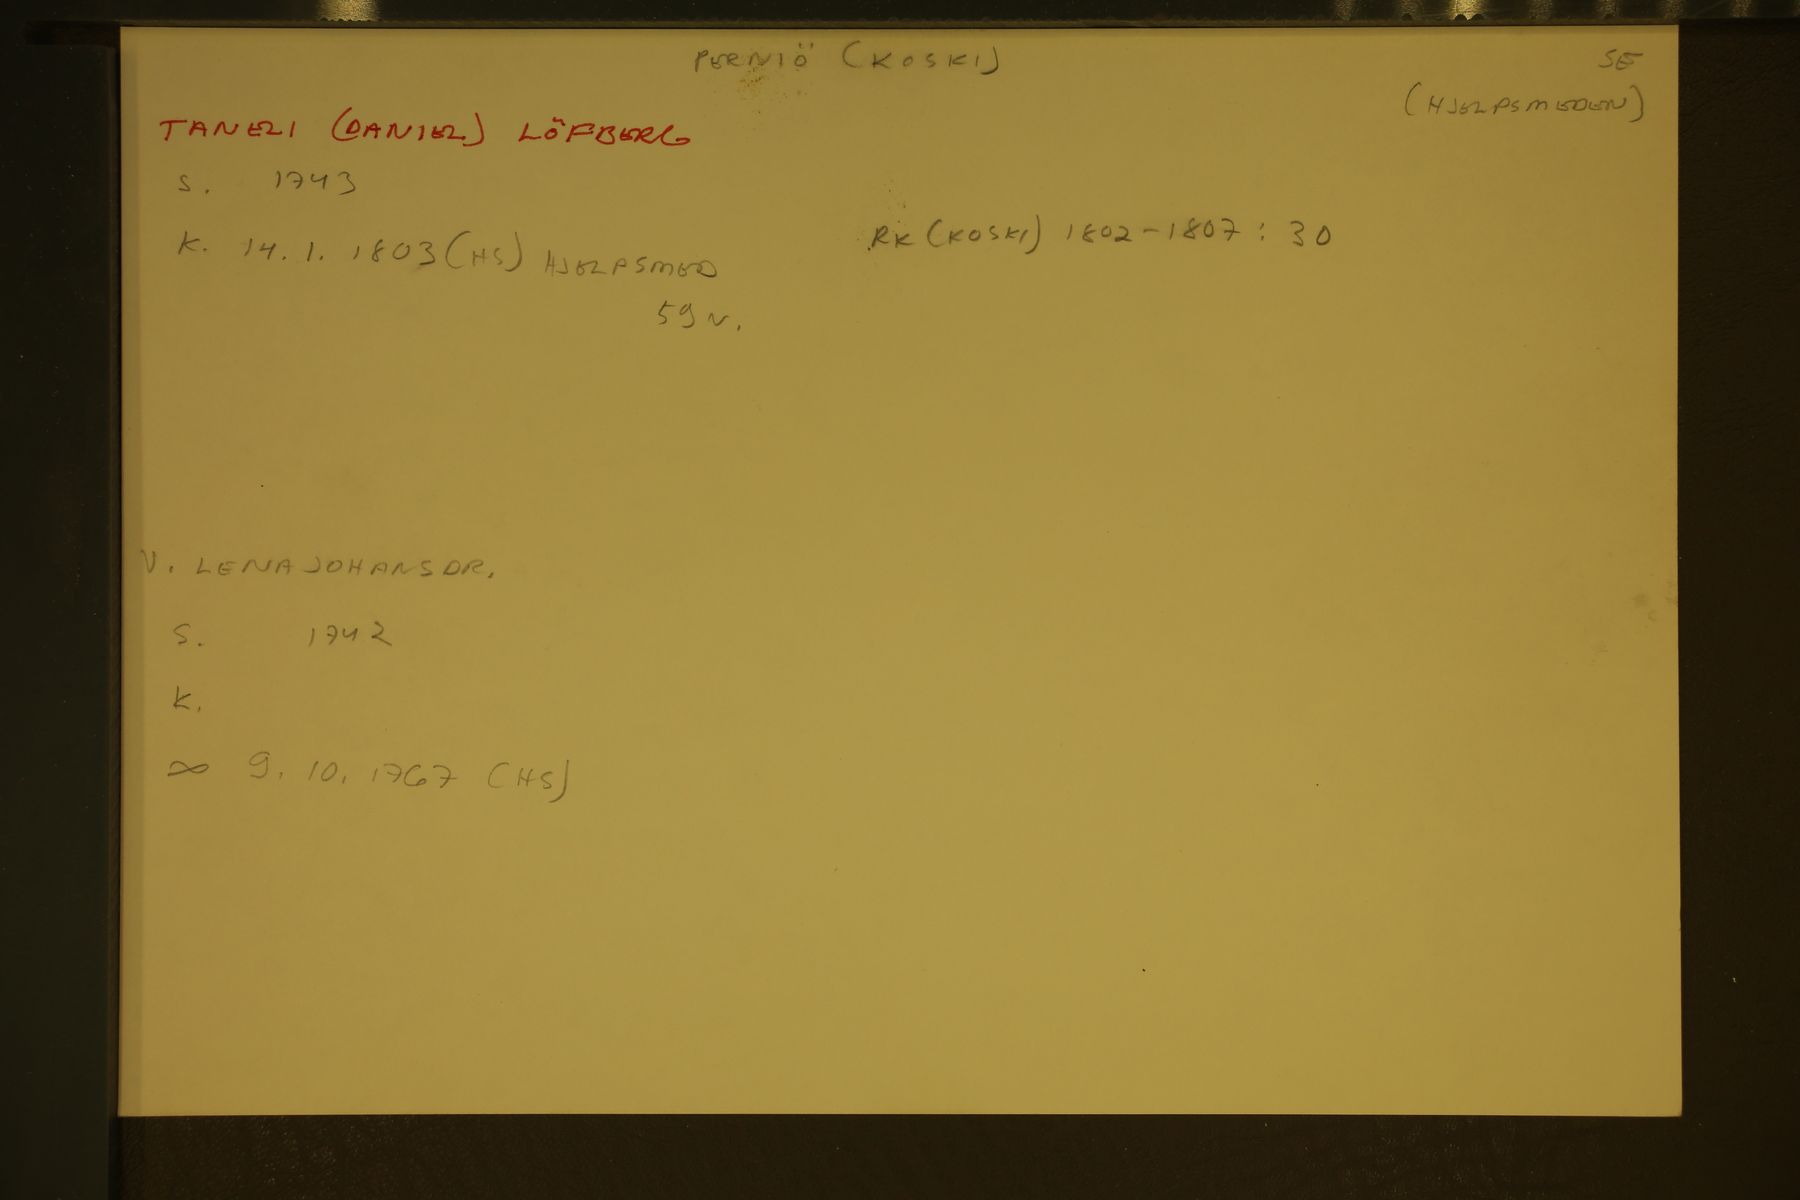 PERNIÖ (KOSKI)
SE
(HJELPSMEDEN)
TANELI (DANIEL) LÖFBERG
S. 1743
K. 14.1.1803 (HS) HJELPSMED
59 V.
RK (KOSKI) 1802-1807: 30
V. LENA JOHANSDR.
S. 1742
K.
∞ 9.10.1767 (HS)